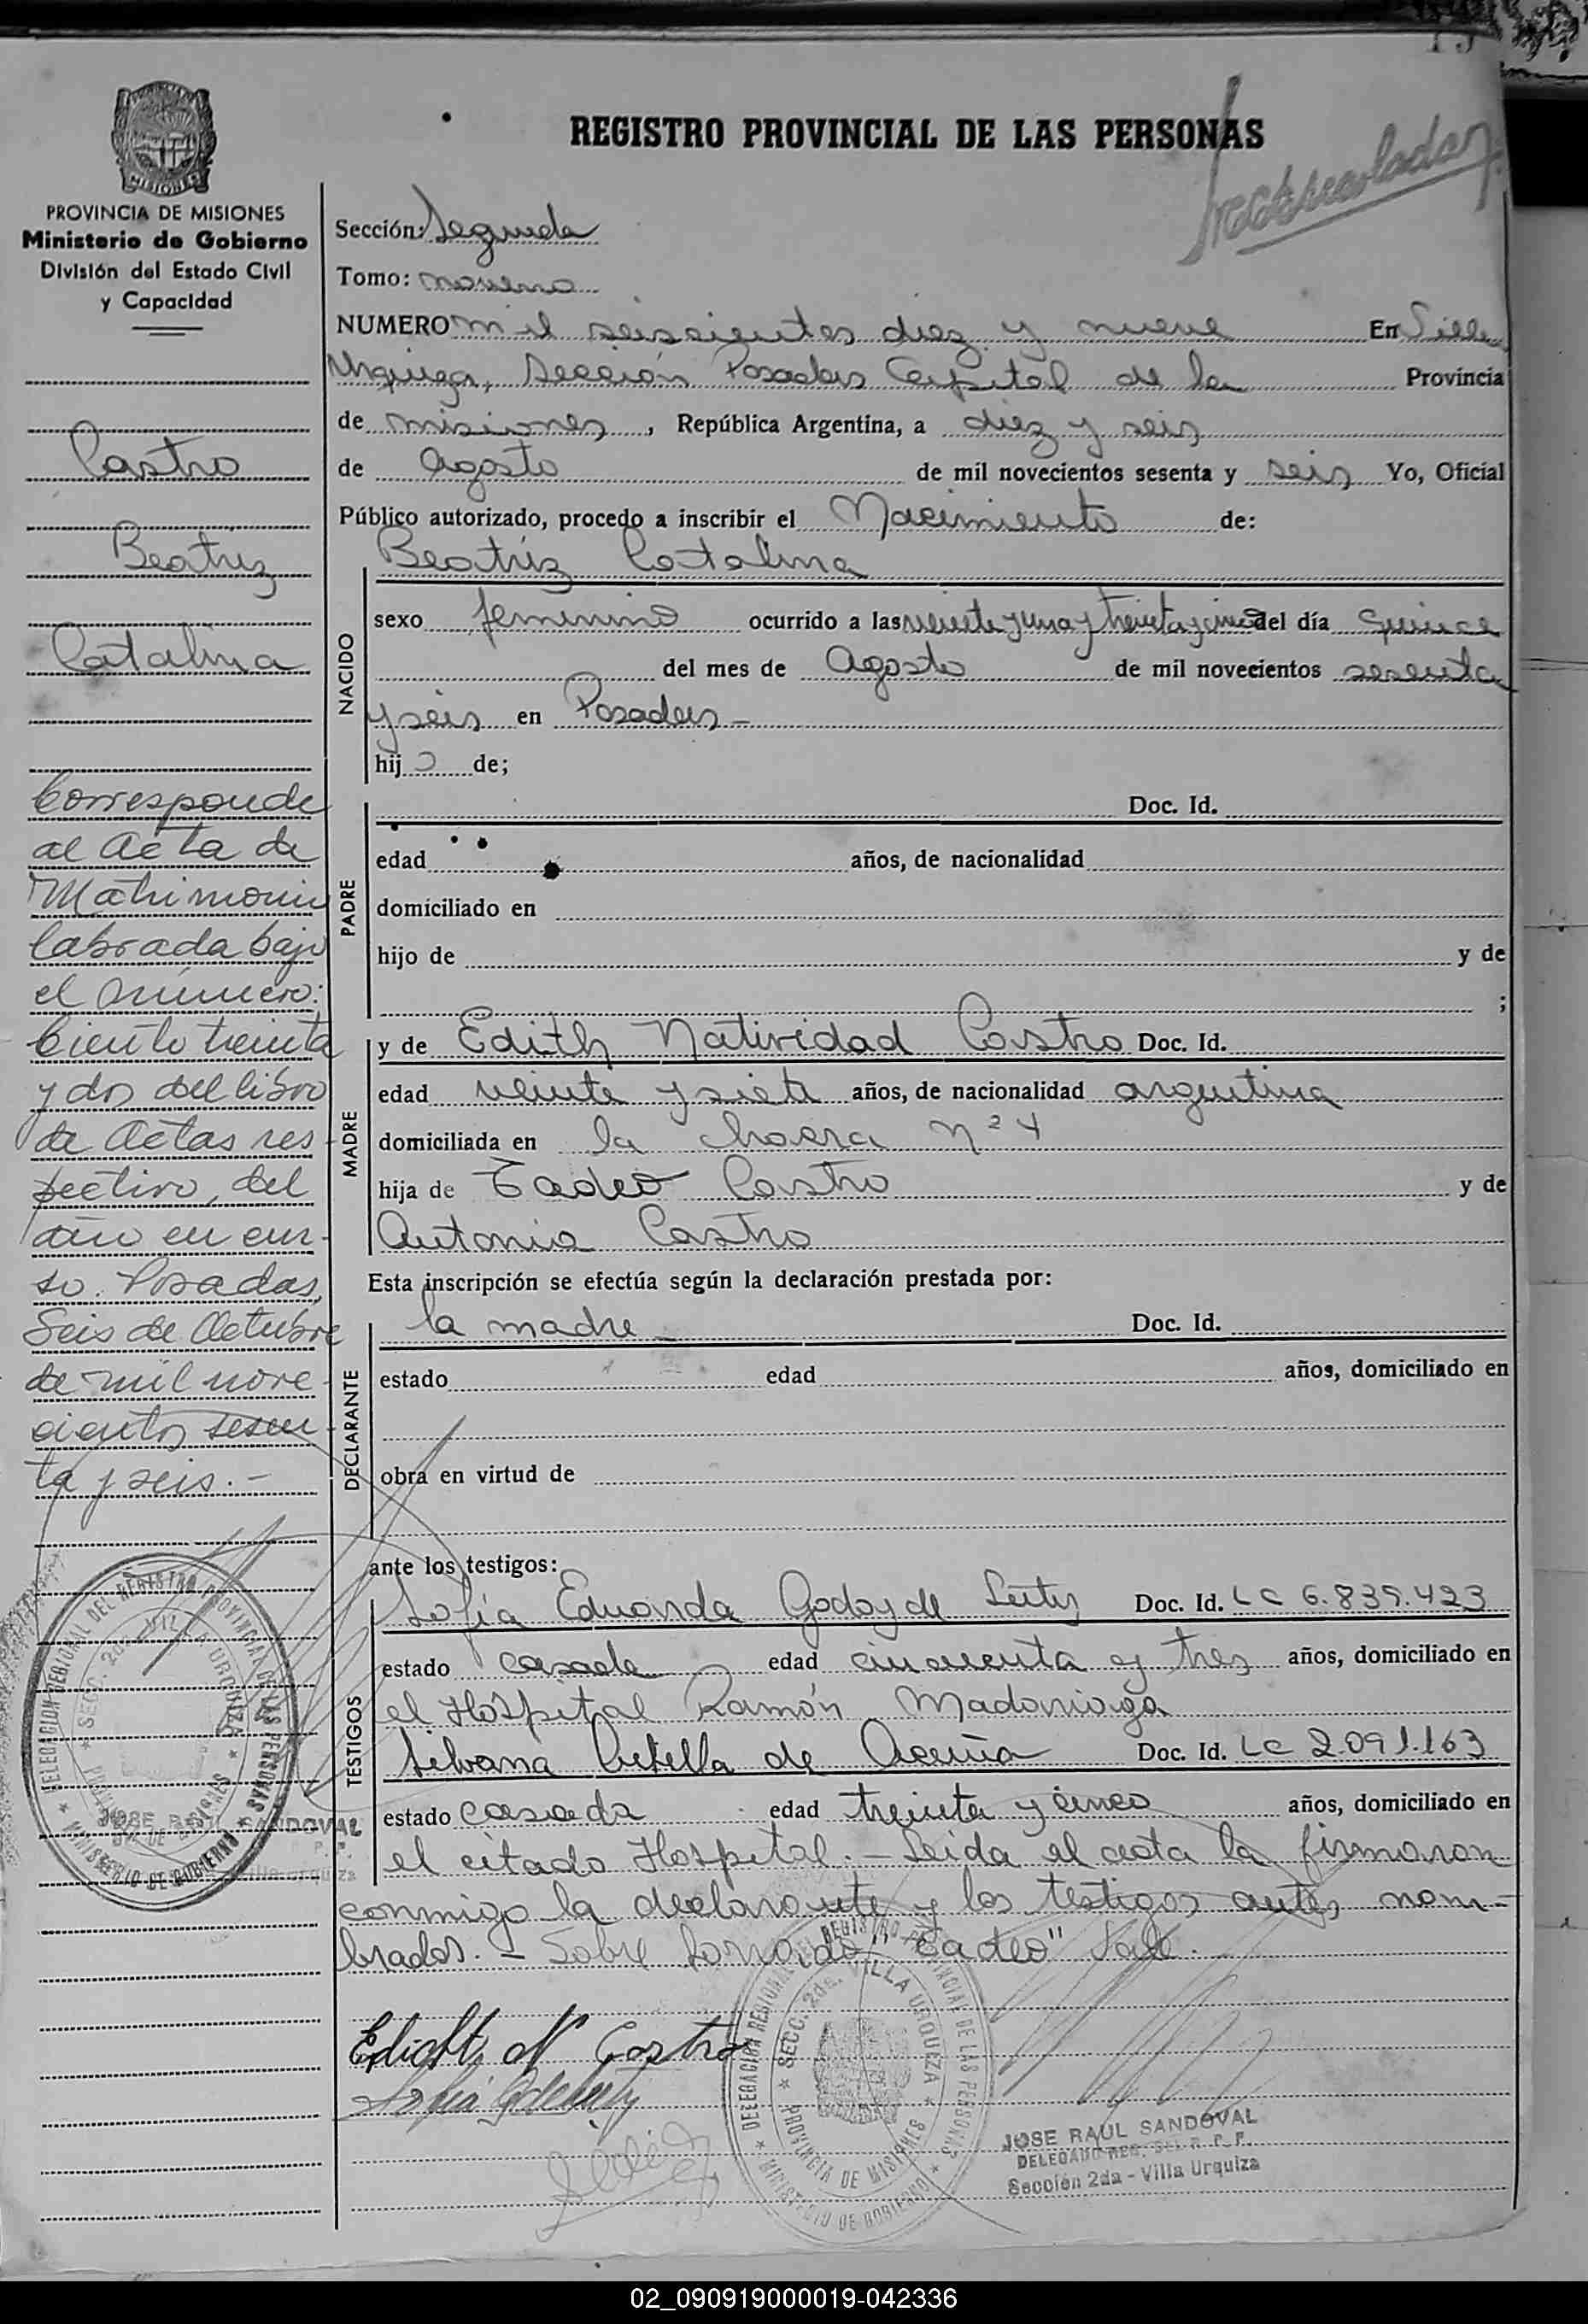 REGISTRO PROVINCIAL DE LAS PERSONAS
MISIONES
PROVINCIA DE MISIONES
Ministerio de Gobierno
División del Estado Civil
y Capacidad
Castro
Beatriz
Catalina
Corresponde
al Acta de
Matrimonio
labrada bajo
el número:
Ciento treinta
y dos del libro
de Actas res-
pectivo, del
año en cur-
so. Posadas,
Seis de Octubre
de mil nove-
cientos sesen-
ta y seis.-
Sección: Segunda
Tomo: noveno
NUMERO mil seiscientos diez y nueve En Villa
Urquiza, Sección Posadas Capital de la Provincia
de misiones, República Argentina, a diez y seis
de Agosto de mil novecientos sesenta y seis Yo, Oficial
Público autorizado, procedo a inscribir el Nacimiento de:
Beatriz Catalina
NACIDO
sexo femenino ocurrido a las veinte y una y treinta y cinco del día quince
del mes de Agosto de mil novecientos sesenta
y seis en Posadas-
hij de;
PADRE
Doc. Id.
edad años, de nacionalidad
domiciliado en
hijo de y de
;
MADRE
y de Edith Natividad Castro Doc. Id.
edad veinte y siete años, de nacionalidad argentina
domiciliada en la chacra nº 4
hija de Tadeo Castro y de
Antonia Castro
Esta inscripción se efectúa según la declaración prestada por:
DECLARANTE
la madre- Doc. Id.
estado edad años, domiciliado en
obra en virtud de
ante los testigos:
TESTIGOS
Sofía Eduarda Godoy de Doc. Id. LC 6.839.423
estado casada edad cincuenta y tres años, domiciliado en
el Hospital Ramón Madariaga
Silvana de Acuña Doc. Id. LC 2.091.163
estado casada edad treinta y cinco años, domiciliado en
el citado Hospital.- Leída el acta la firmaron
conmigo la declarante y los testigos antes nom-
brados.- Sobre borrado: "Tadeo" Vale.
Edith N Castro
DELEGACION REGIONAL DEL REGISTRO PROVINCIAL DE LAS PERSONAS
SECC. 2da. VILLA URQUIZA
PROVINCIA DE MISIONES
MINISTERIO DE GOBIERNO
JOSE RAUL SANDOVAL
DELEGADO REG. DEL R. P. P.
Sección 2da - Villa Urquiza
DELEGACION REGIONAL DEL REGISTRO PROVINCIAL DE LAS PERSONAS
SECC. 2da. VILLA URQUIZA
PROVINCIA DE MISIONES
MINISTERIO DE GOBIERNO
JOSE RAUL SANDOVAL
Villa Urquiza
02_090919000019-042336